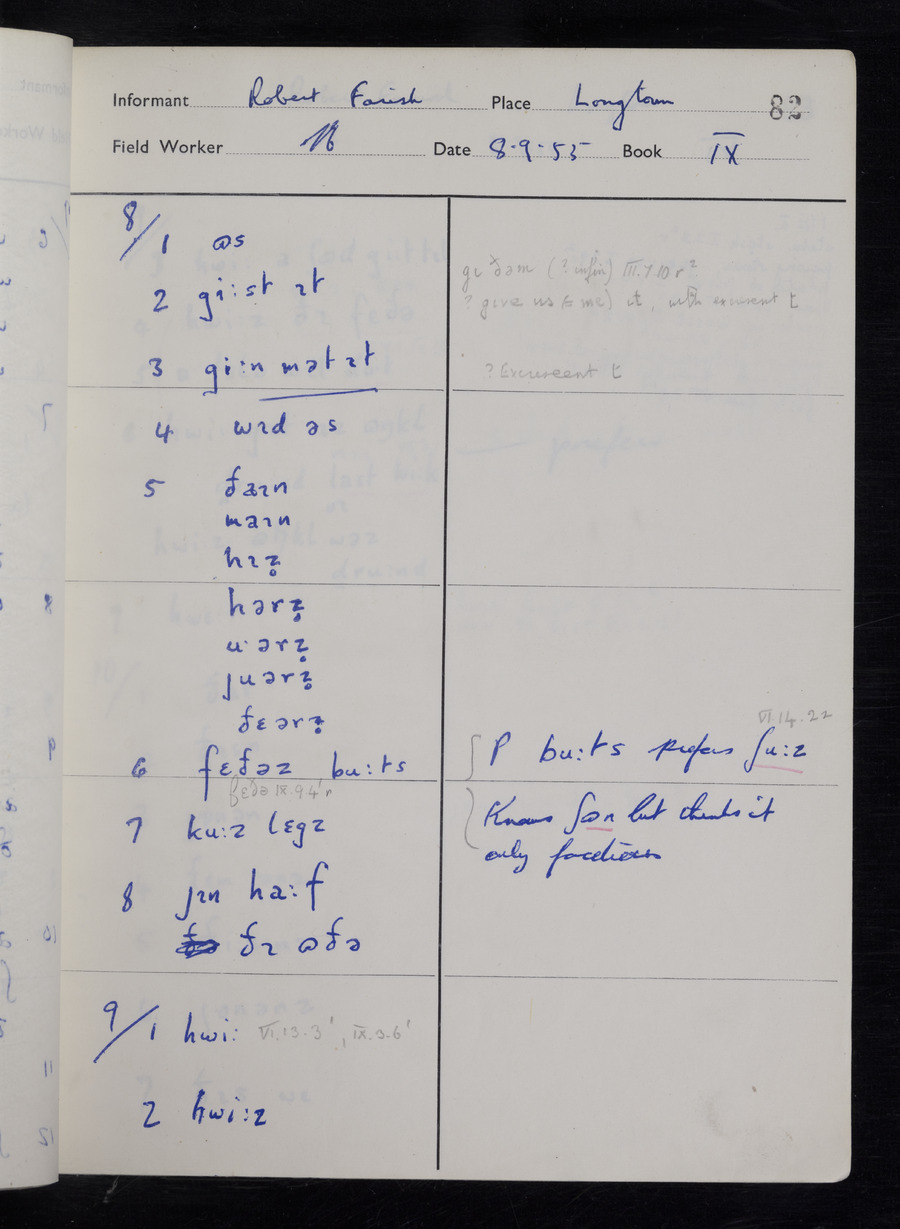 Informant Robert Farish Place Longtown 82
Field Worker Date 8·9·53 Book IX
8/1 ɷs
2 gi:st ɪt
gɪ ðəm (? infin) III.7.10 r²
? give us (= me) it, with excrescent t
3 gi:n mət ɪt
? Excrescent t
4 wɪd əs
5 ðaɪn
maɪn
hɪz̥
hərz̥
u·ərz̥
juərz̥
ðɛərz̥
6 fɛðəz bu:ts
VI.14.22
P bu:ts prefers ʃu:z
fɛðə IX.9.4' r
7 ku:z lɛgz
Knows ʃɷn but thinks it
only facetious
8 jɪn ha:f
ðɪ ɷðə
9/1 hwi: VI.13.3', IX.9.6'
2 hwi:z